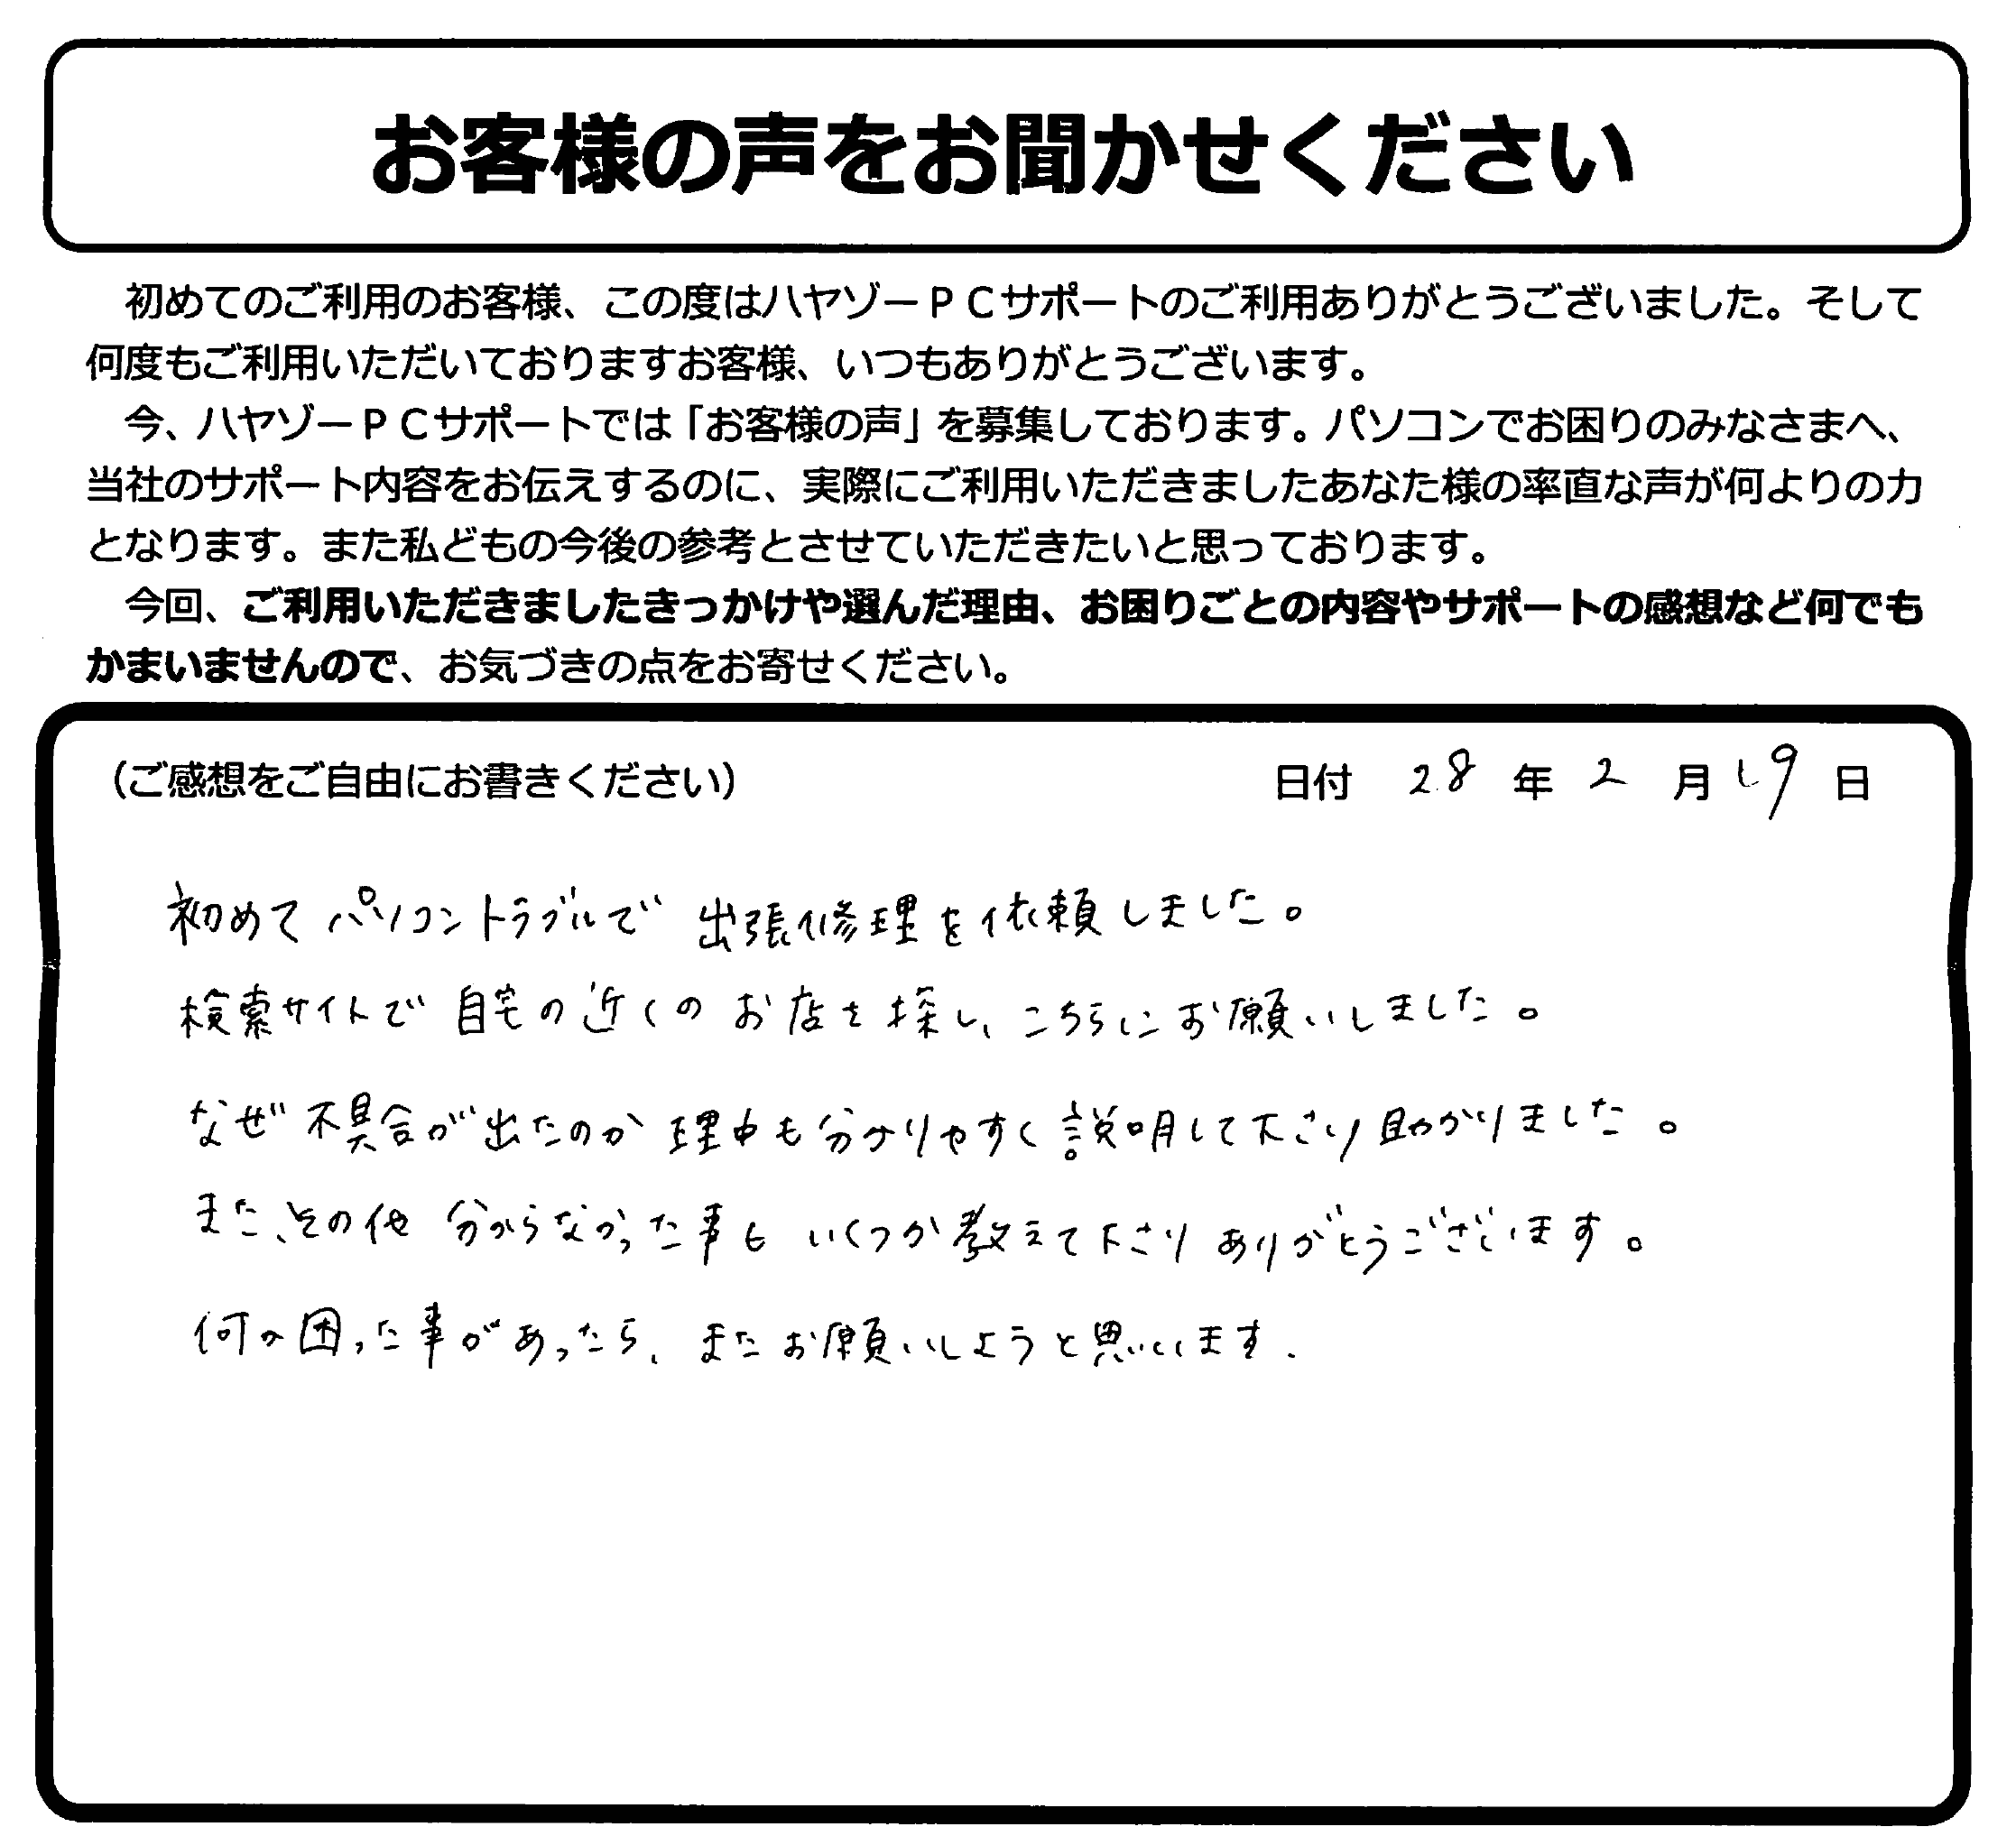 お客様の声をお聞かせください
初めてのご利用のお客様、この度はハヤゾーＰＣサポートのご利用ありがとうございました。そして
何度もご利用いただいておりますお客様、いつもありがとうございます。
今、ハヤゾーＰＣサポートでは「お客様の声」を募集しております。パソコンでお困りのみなさまへ、
当社のサポート内容をお伝えするのに、実際にご利用いただきましたあなた様の率直な声が何よりの力
となります。また私どもの今後の参考とさせていただきたいと思っております。
今回、ご利用いただきましたきっかけや選んだ理由、お困りごとの内容やサポートの感想など何でも
かまいませんので、お気づきの点をお寄せください。
（ご感想をご自由にお書きください） 日付 28 年 2 月 19 日
初めてパソコントラブルで 出張修理を依頼しました。
検索サイトで 自宅の近くのお店を探し、こちらにお願いしました。
なぜ不具合が出たのか 理由も分かりやすく説明して下さり助かりました。
また、その他 分からなかった事も いくつか教えて下さり ありがとうございます。
何か困った事があったら、またお願いしようと思います.